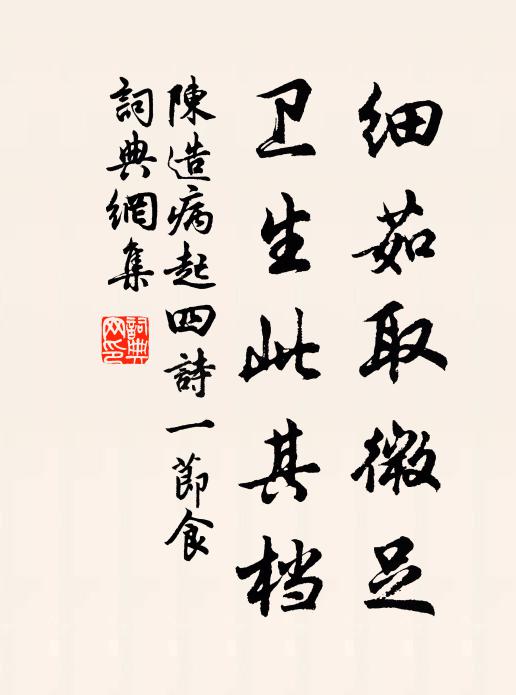 细茹取微足
卫生此其档
陳造病起四詩一節食
詞典網集
詞典网印